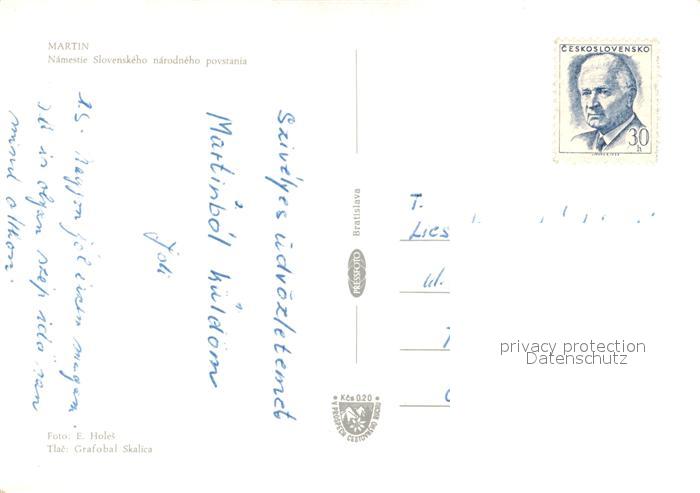 MARTIN
Námestie Slovenského národného povstania
Szivélyes üdvözletemet
Martinból küldöm
Joli
P.S. Nagyon jól érzem magam.
Itt is olyan szép idő van
mint otthon.
Foto: E. Holeš
Tlač: Grafobal Skalica
Bratislava
PRESSFOTO
Kčs 0.20
V PROSPECH CESTOVNÉHO RUCHU
ČESKOSLOVENSKO
30
h
T.
ul.
privacy protection
Datenschutz